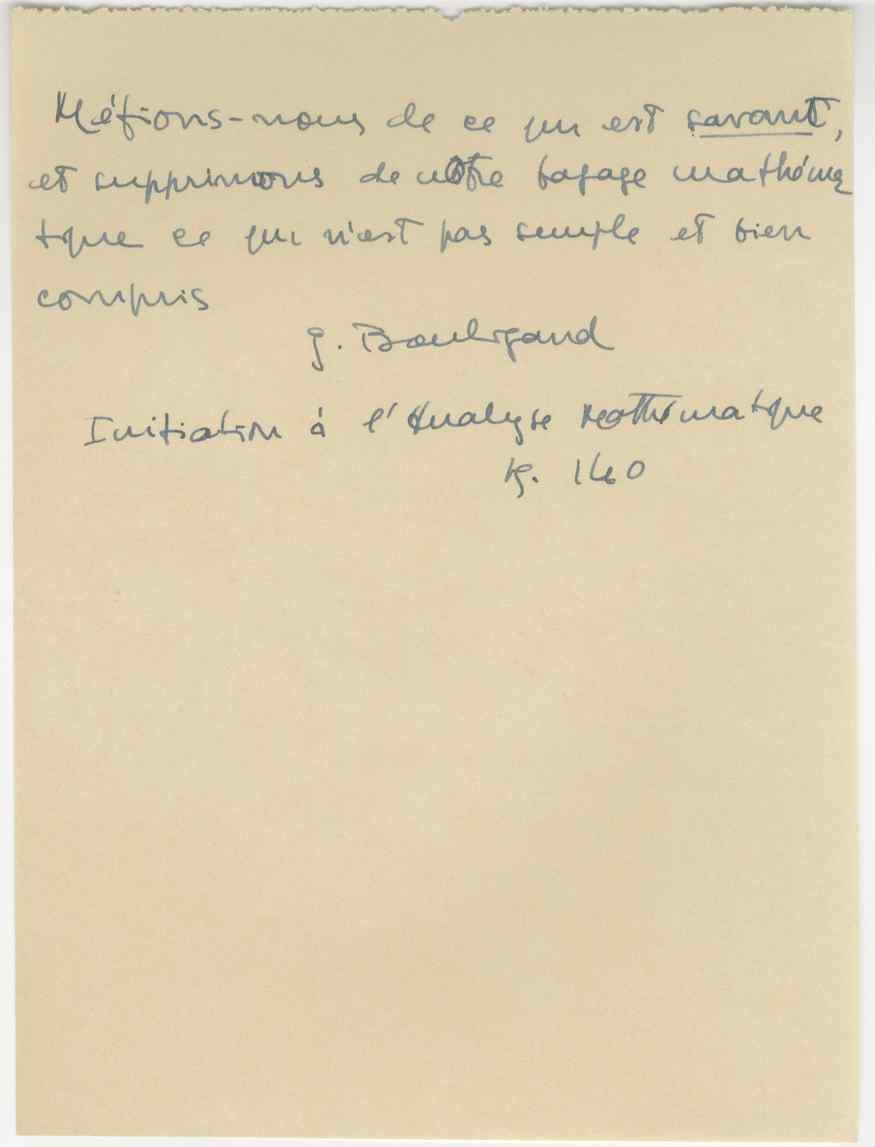 Méfions-nous de ce qui est savant,
et supprimons de nôtre bagage mathéma
tique ce qui n'est pas simple et bien
compris
G. Bouligand
Initiation à l'Analyse Mathématique
p. 140